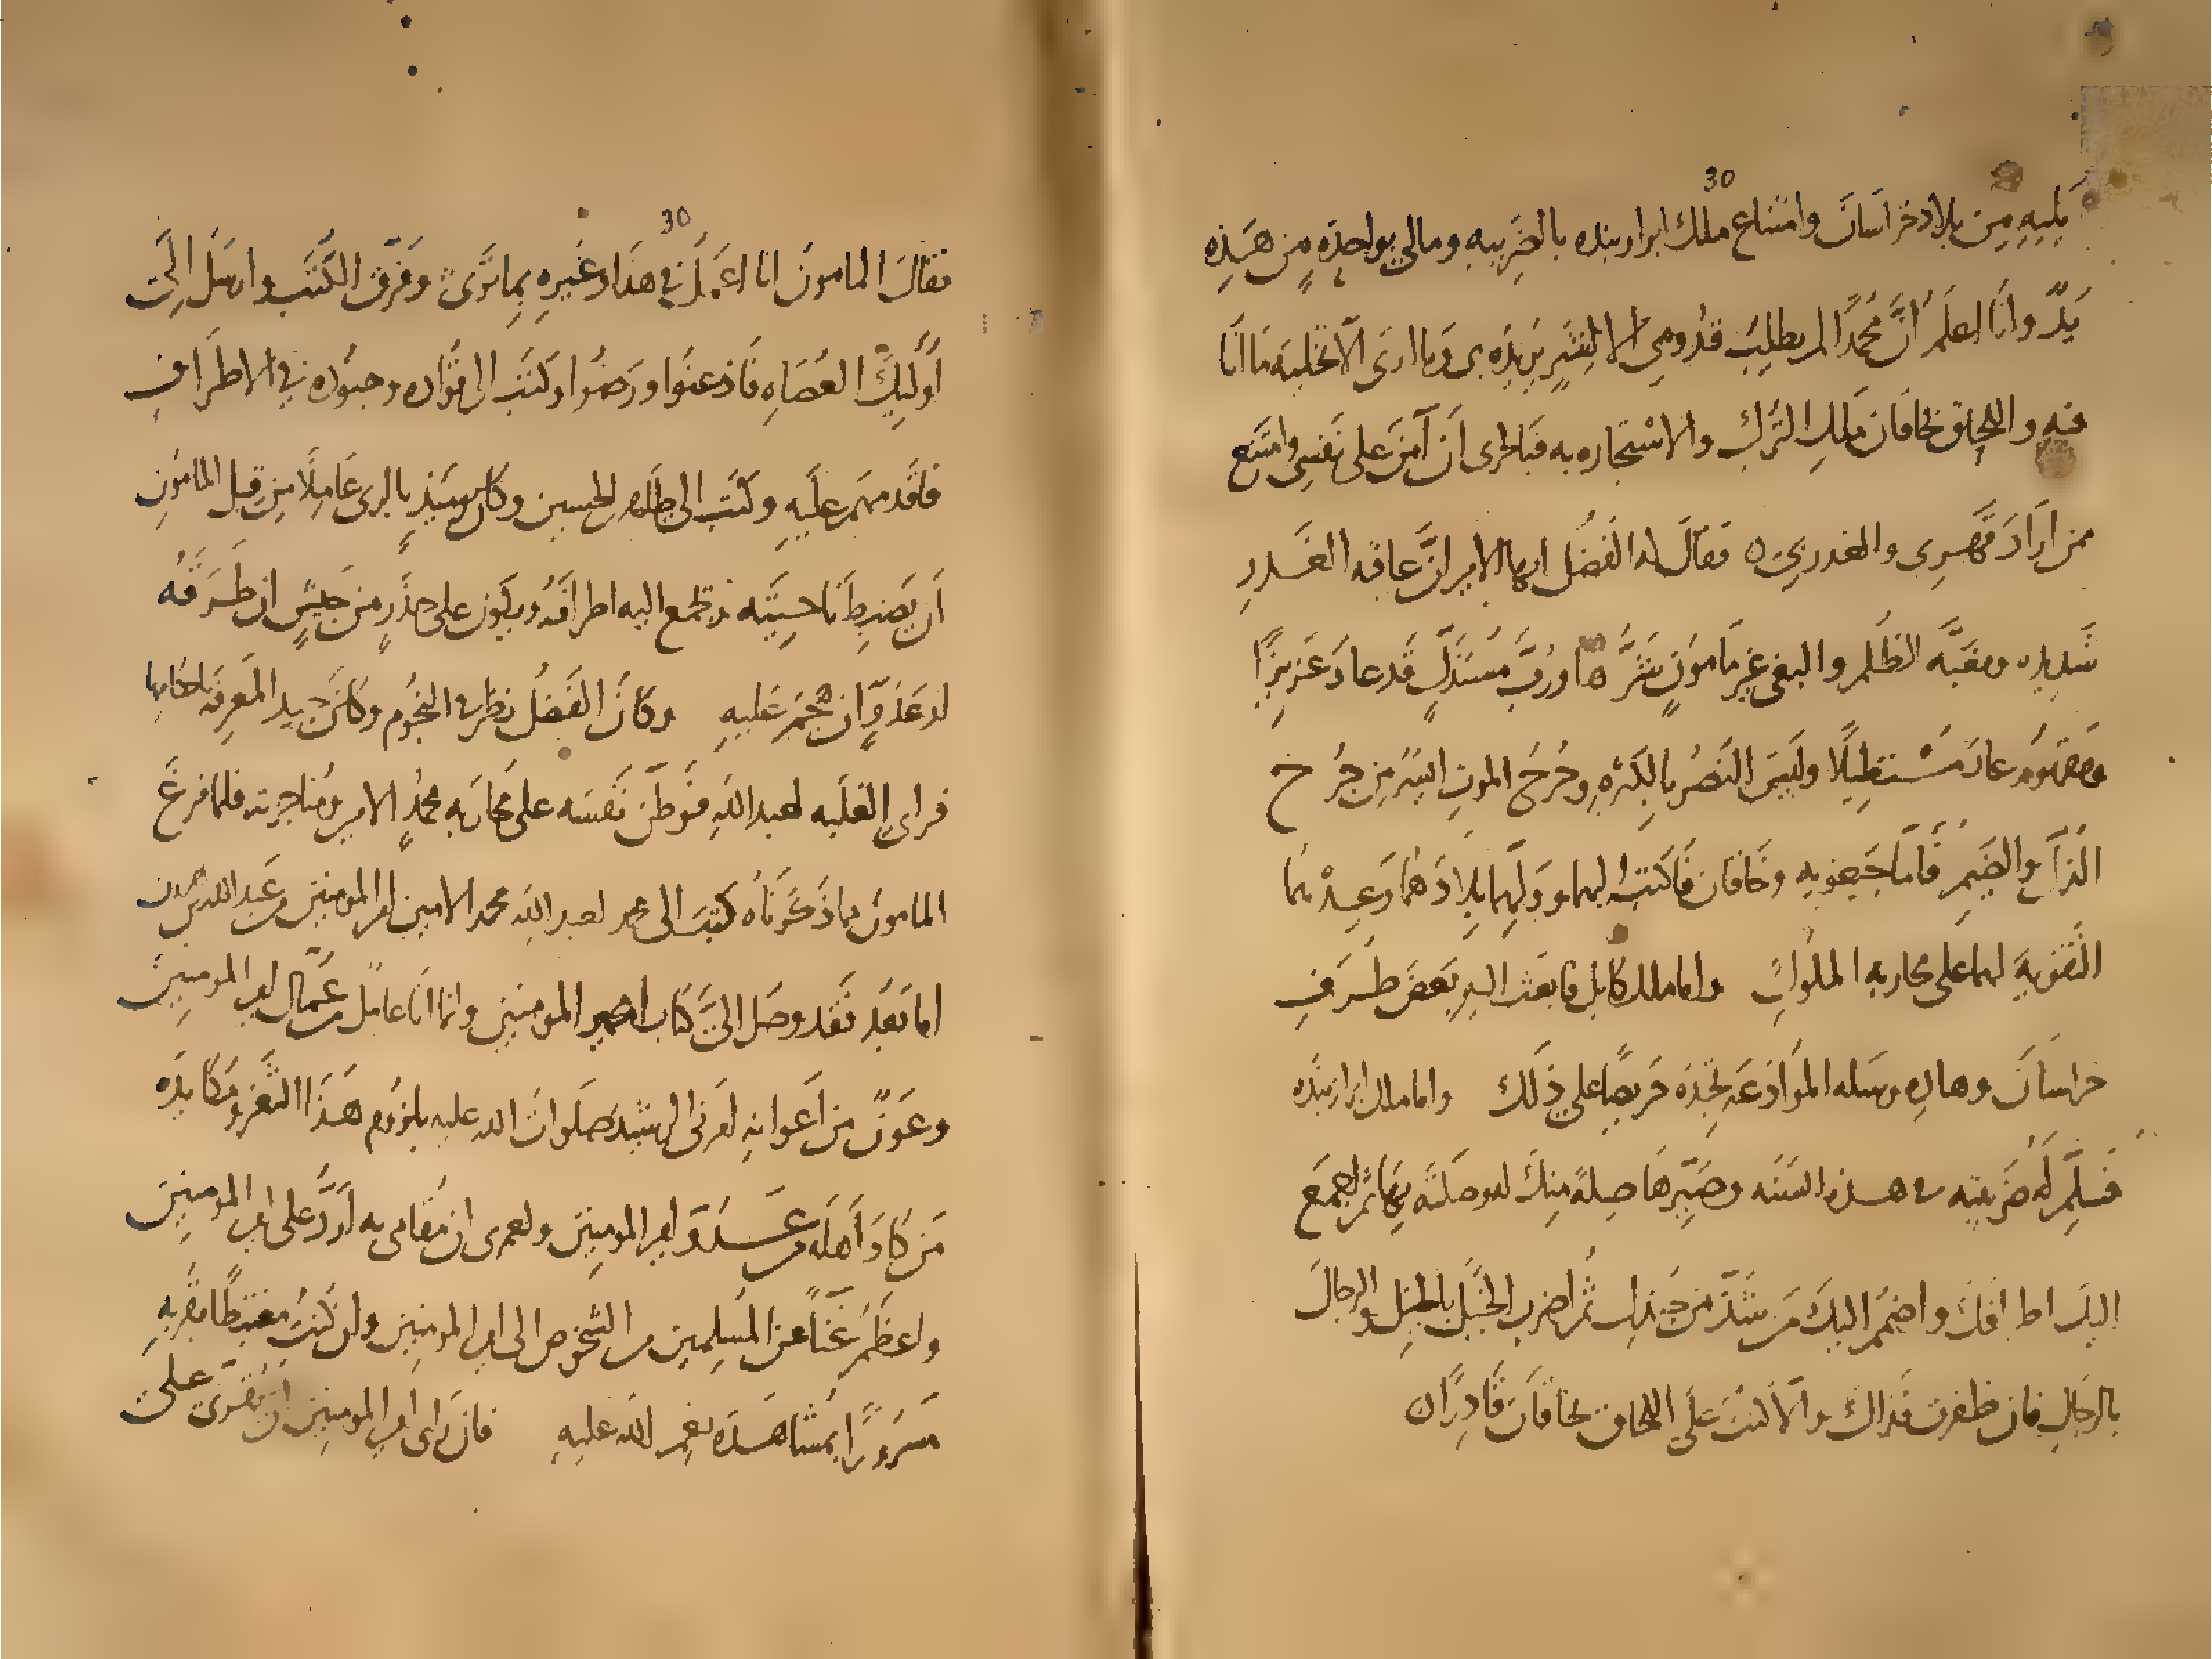 30
يليه من بلاد خراسان وامتناع ملك ابراربنده بالضريبه ومالي بواحدة من هذه
يد وانا اعلم ان محمدا لم يطلب قدومي الا لشر يريده بي وما ارى الا تخلية ما انا
فيه واللحاق بخاقان ملك الترك والاستجاره به فبالحرى ان آمن على نفسي وامتنع
من اراد قهري والغدر بي ه فقال له الفضل ايها الامير ان عاقبه الغدر
شديده ومغبه الظلم والبغي غير مامون شرها ورب مستذل قد عاد عزيزا
ومقهور عاد مستطيلا وليس النصر بالكثره وجرح الموت ايسر من جرح
الذل والضيم فاما جيغويه وخاقان فاكتب اليهما وولهما بلادهما وعدهما
التقوية لهما على محاربه الملوك واما ملك كابل فابعث اليه بعض طرف
خراسان وهاده وسله الموادعه تجده حريصا على ذلك واما ملك ابراربنده
فسلم له ضريبته في هذه السنه وصيرها صلة منك له وصلته بها ثم اجمع
اليك اطرافك واضمم اليك من شذ من جندك ثم اضرب الخيل بالخيل والرجال
بالرجال فان ظفرت فذاك والا كنت على اللحاق بخاقان قادرا ه
30
فقال المامون انا اعمل في هذا وغيره بما ترى وفرق الكتب وارسل الى
اوليك العصاه فاذعنوا ورضوا وكتب الى قواده وجنوده في الاطراف
فاقدمهم عليه وكتب الى طاهر بن الحسين وكان يوميذ بالري عاملا من قبل المامون
ان يضبط ناحيته وتجمع اليه اطرافه ويكون على حذر من جيش ان طرقه
او عدو ان هجم عليه وكان الفضل ينظر في النجوم وكان جيد المعرفه باحكامها
فراى الغلبه لعبد الله فوطن نفسه على محاربه محمد الامين ومناجزته فلما فرغ
المامون مما ذكرناه كتب الى محمد لعبد الله محمد الامين امير المومنين من عبد الله بن هرون
اما بعد فقد وصل الي كتاب امير المومنين وانما انا عامل من عمال امير المومنين
وعون من اعوانه امرني الرشيد صلوات الله عليه بلزوم هذا الثغر ومكايده
من كاد اهله من عدو امير المومنين ولعمري ان مقامي به ارد على امير المومنين
واعظم غناء عن المسلمين من الشخوص الى امير المومنين وان كنت مغتبطا بقربه
مسرورا بمشاهدة نعم الله عليه فان راى امير المومنين ان يقرني على